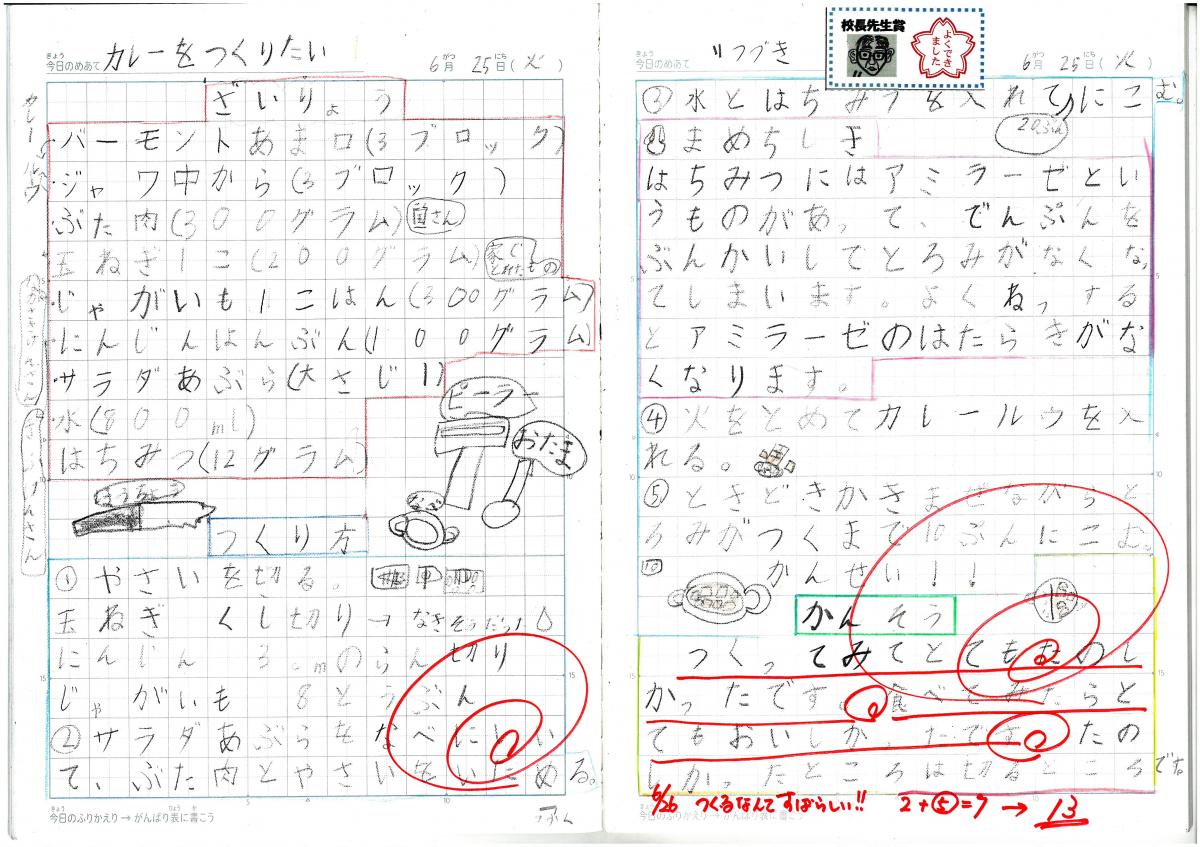 きょう
今日のめあて カレーをつくりたい
6月 25日(火)
ざいりょう
カレールウ
バーモントあま口(3ブロック)
ジャワ中から(3ブロック)
ぶた肉(300グラム)
玉ねぎ1こ(200グラム)
家でとれたもの
じゃがいも1こはん(300グラム)
にんじんはんぶん(100グラム)
サラダあぶら(大さじ1)
水(800ml)
はちみつ(12グラム)
ピーラー
おたま
ほうちょう
つくり方
①やさいを切る。
玉ねぎ くし切り→なきそうだら!
にんじん 3cmのらん切り
じゃがいも 8とうぶん
②サラダあぶらをなべにしい
て、ぶた肉とやさいをいためる。
きょう
今日のふりかえり→がんばり表に書こう
きょう
今日のめあて
つづき
6月 25日(火)
校長先生賞
よくできました
③水とはちみつを入れてにこむ。
20ぷん
まめちしき
はちみつにはアミラーゼとい
うものがあって、でんぷんを
ぶんかいしてとろみがなくなっ
てしまいます。よくねっする
とアミラーゼのはたらきがな
くなります。
④火をとめてカレールウを入
れる。
⑤ときどきかきまぜながらと
ろみがつくまで10ぷんにこむ。
かんせい!!
かんそう
つくってみてとてもたのし
かったです。食べてみたらと
てもおいしかったです。たの
しかったところは切るところです。
きょう
今日のふりかえり→がんばり表に書こう
6/26 つくるなんてすばらしい!! 2+⑤=7→13